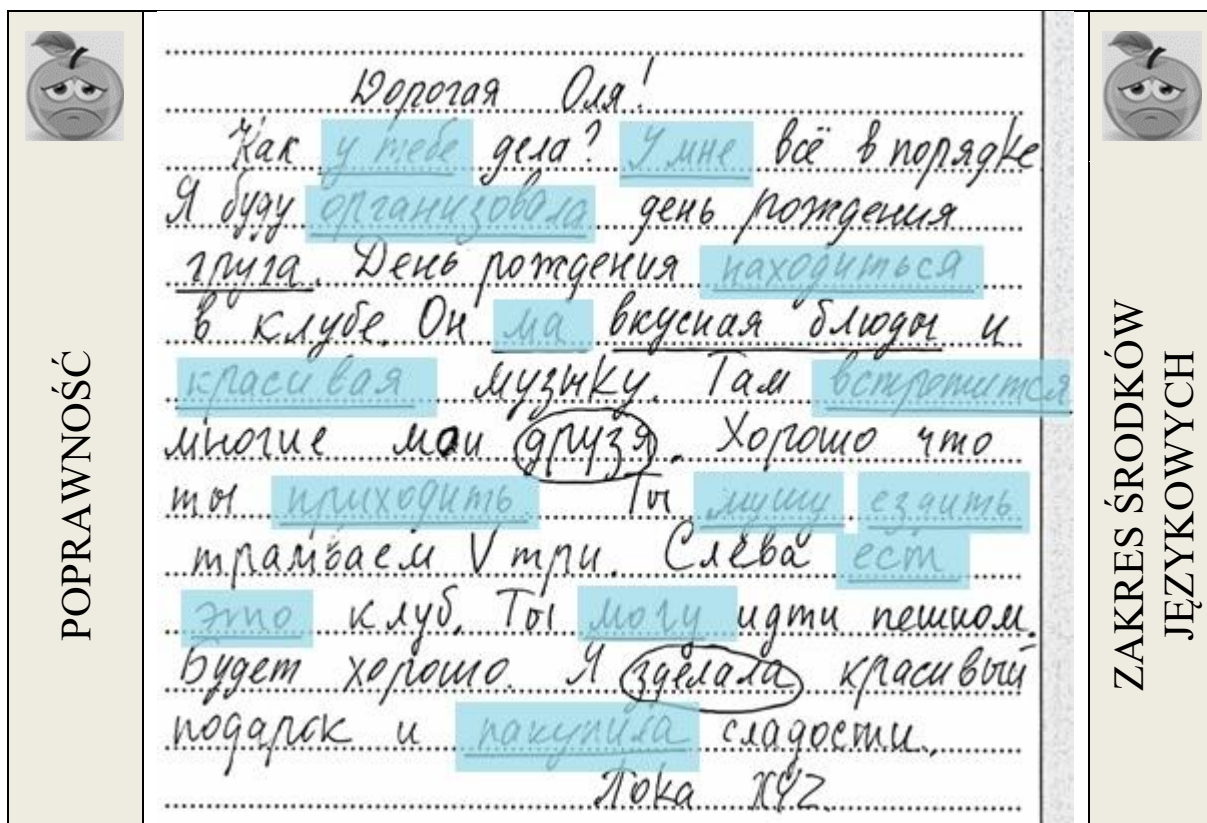 POPRAWNOŚĆ
Дорогая Оля!
Как у тебе дела? У мне всё в порядке
Я буду организовала день рождения
друга. День рождения находиться
в клубе. Он ма вкусная блюды и
красивая музыку. Там встротится
многие мои друзя. Хорошо что
ты приходить Ты мушу ездить
трамваем V три. Слева ест
это клуб. Ты могу идти пешком.
Будет хорошо. Я зделала красивый
подарок и пакупила сладости.
Пока XYZ.
ZAKRES ŚRODKÓW
JĘZYKOWYCH